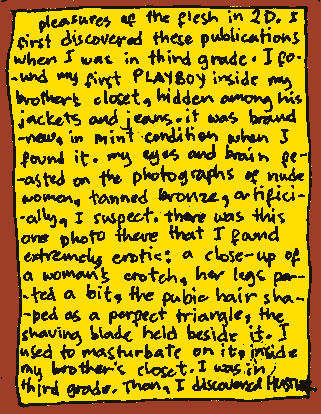 pleasures of the flesh in 2D. I
first discovered these publications
when I was in third grade. I fo-
-und my first PLAYBOY inside my
brother's closet, hidden among his
jackets and jeans. it was brand
-new, in mint condition when I
found it. my eyes and brain fe-
-asted on the photographs of nude
women, tanned bronze, artifici-
-ally, I suspect. there was this
one photo there that I found
extremely erotic: a close-up of
a woman's crotch, her legs par-
-ted a bit, the pubic hair sha-
-ped as a perfect triangle, the
shaving blade held beside it. I
used to masturbate on it, inside
my brother's closet. I was in
third grade. Then, I discovered Hustler